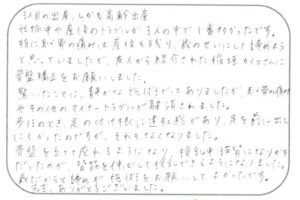 3人目の出産、しかも高齢出産
妊娠中や産後のトラブルが3人の中で1番多かったです。
特に恥骨の痛みは産後も残り、歳のせいにして諦めよう
と思っていましたが、友人から紹介された稲垣さんに
骨盤矯正をお願いしました。
驚いたことに、静かな施術でありましたが、恥骨の痛み
やその他のマイナートラブルが解消されました。
歩行のとき、足の付け根に違和感があり、足を前に出し
にくかったのですが、それもなくなりました。
骨盤を立てて座れるようになり、授乳中猫背になりがち
だったのが、背筋を伸ばして授乳できるようになりました。
歳だからと諦めず施術をお願いしてよかったです。
先生、ありがとうございました。